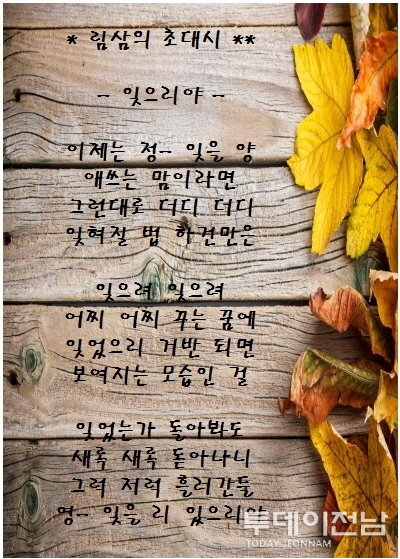 * 림삼의 초대시 **
- 잊으리야 -
이제는 정-- 잊을 양
애쓰는 맘이라면
그런대로 더디 더디
잊혀질 법 하건만은
잊으려 잊으려
어찌 어찌 꾸는 꿈에
잊었으리 거반 되면
보여지는 모습인 걸
잊었는가 돌아봐도
새록 새록 돋아나니
그럭 저럭 흘러간들
영-- 잊을 리 있으리야
투데이전남
TODAY JEONNAM